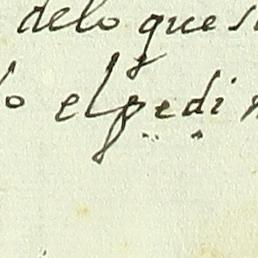 delo que s
lo el pedi